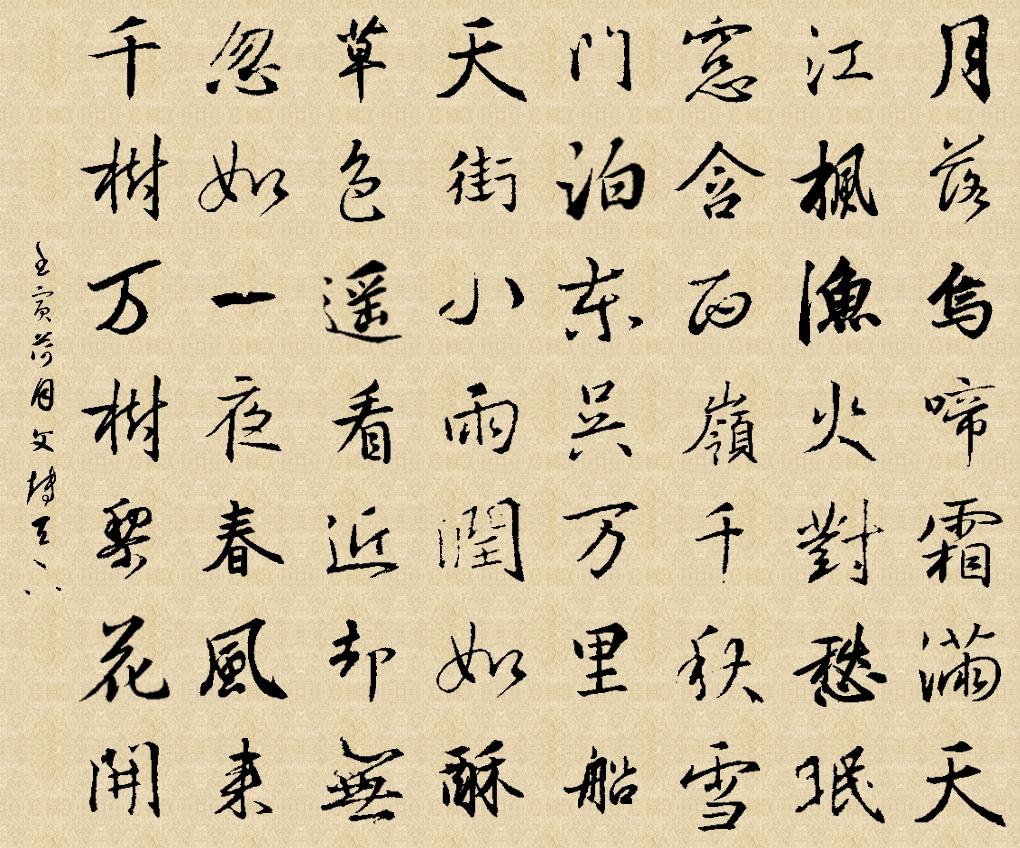 月落烏啼霜滿天
江楓漁火對愁眠
窓含西嶺千秋雪
门泊东吴万里船
天街小雨潤如酥
草色遥看近却無
忽如一夜春風来
千樹万樹梨花開
壬寅荷月文博书